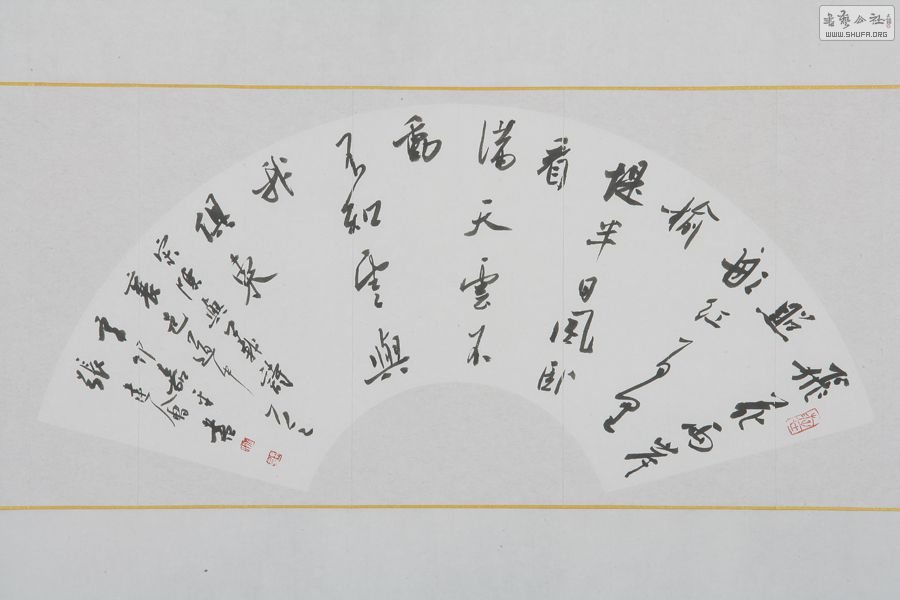 書藝公社
WWW.SHUFA.ORG
飛花兩岸
照
船紅百里
榆
堤半日風卧
看
滿天雲不
動
不知雲與
我
俱東
宋陳與義詩
襄邑道中